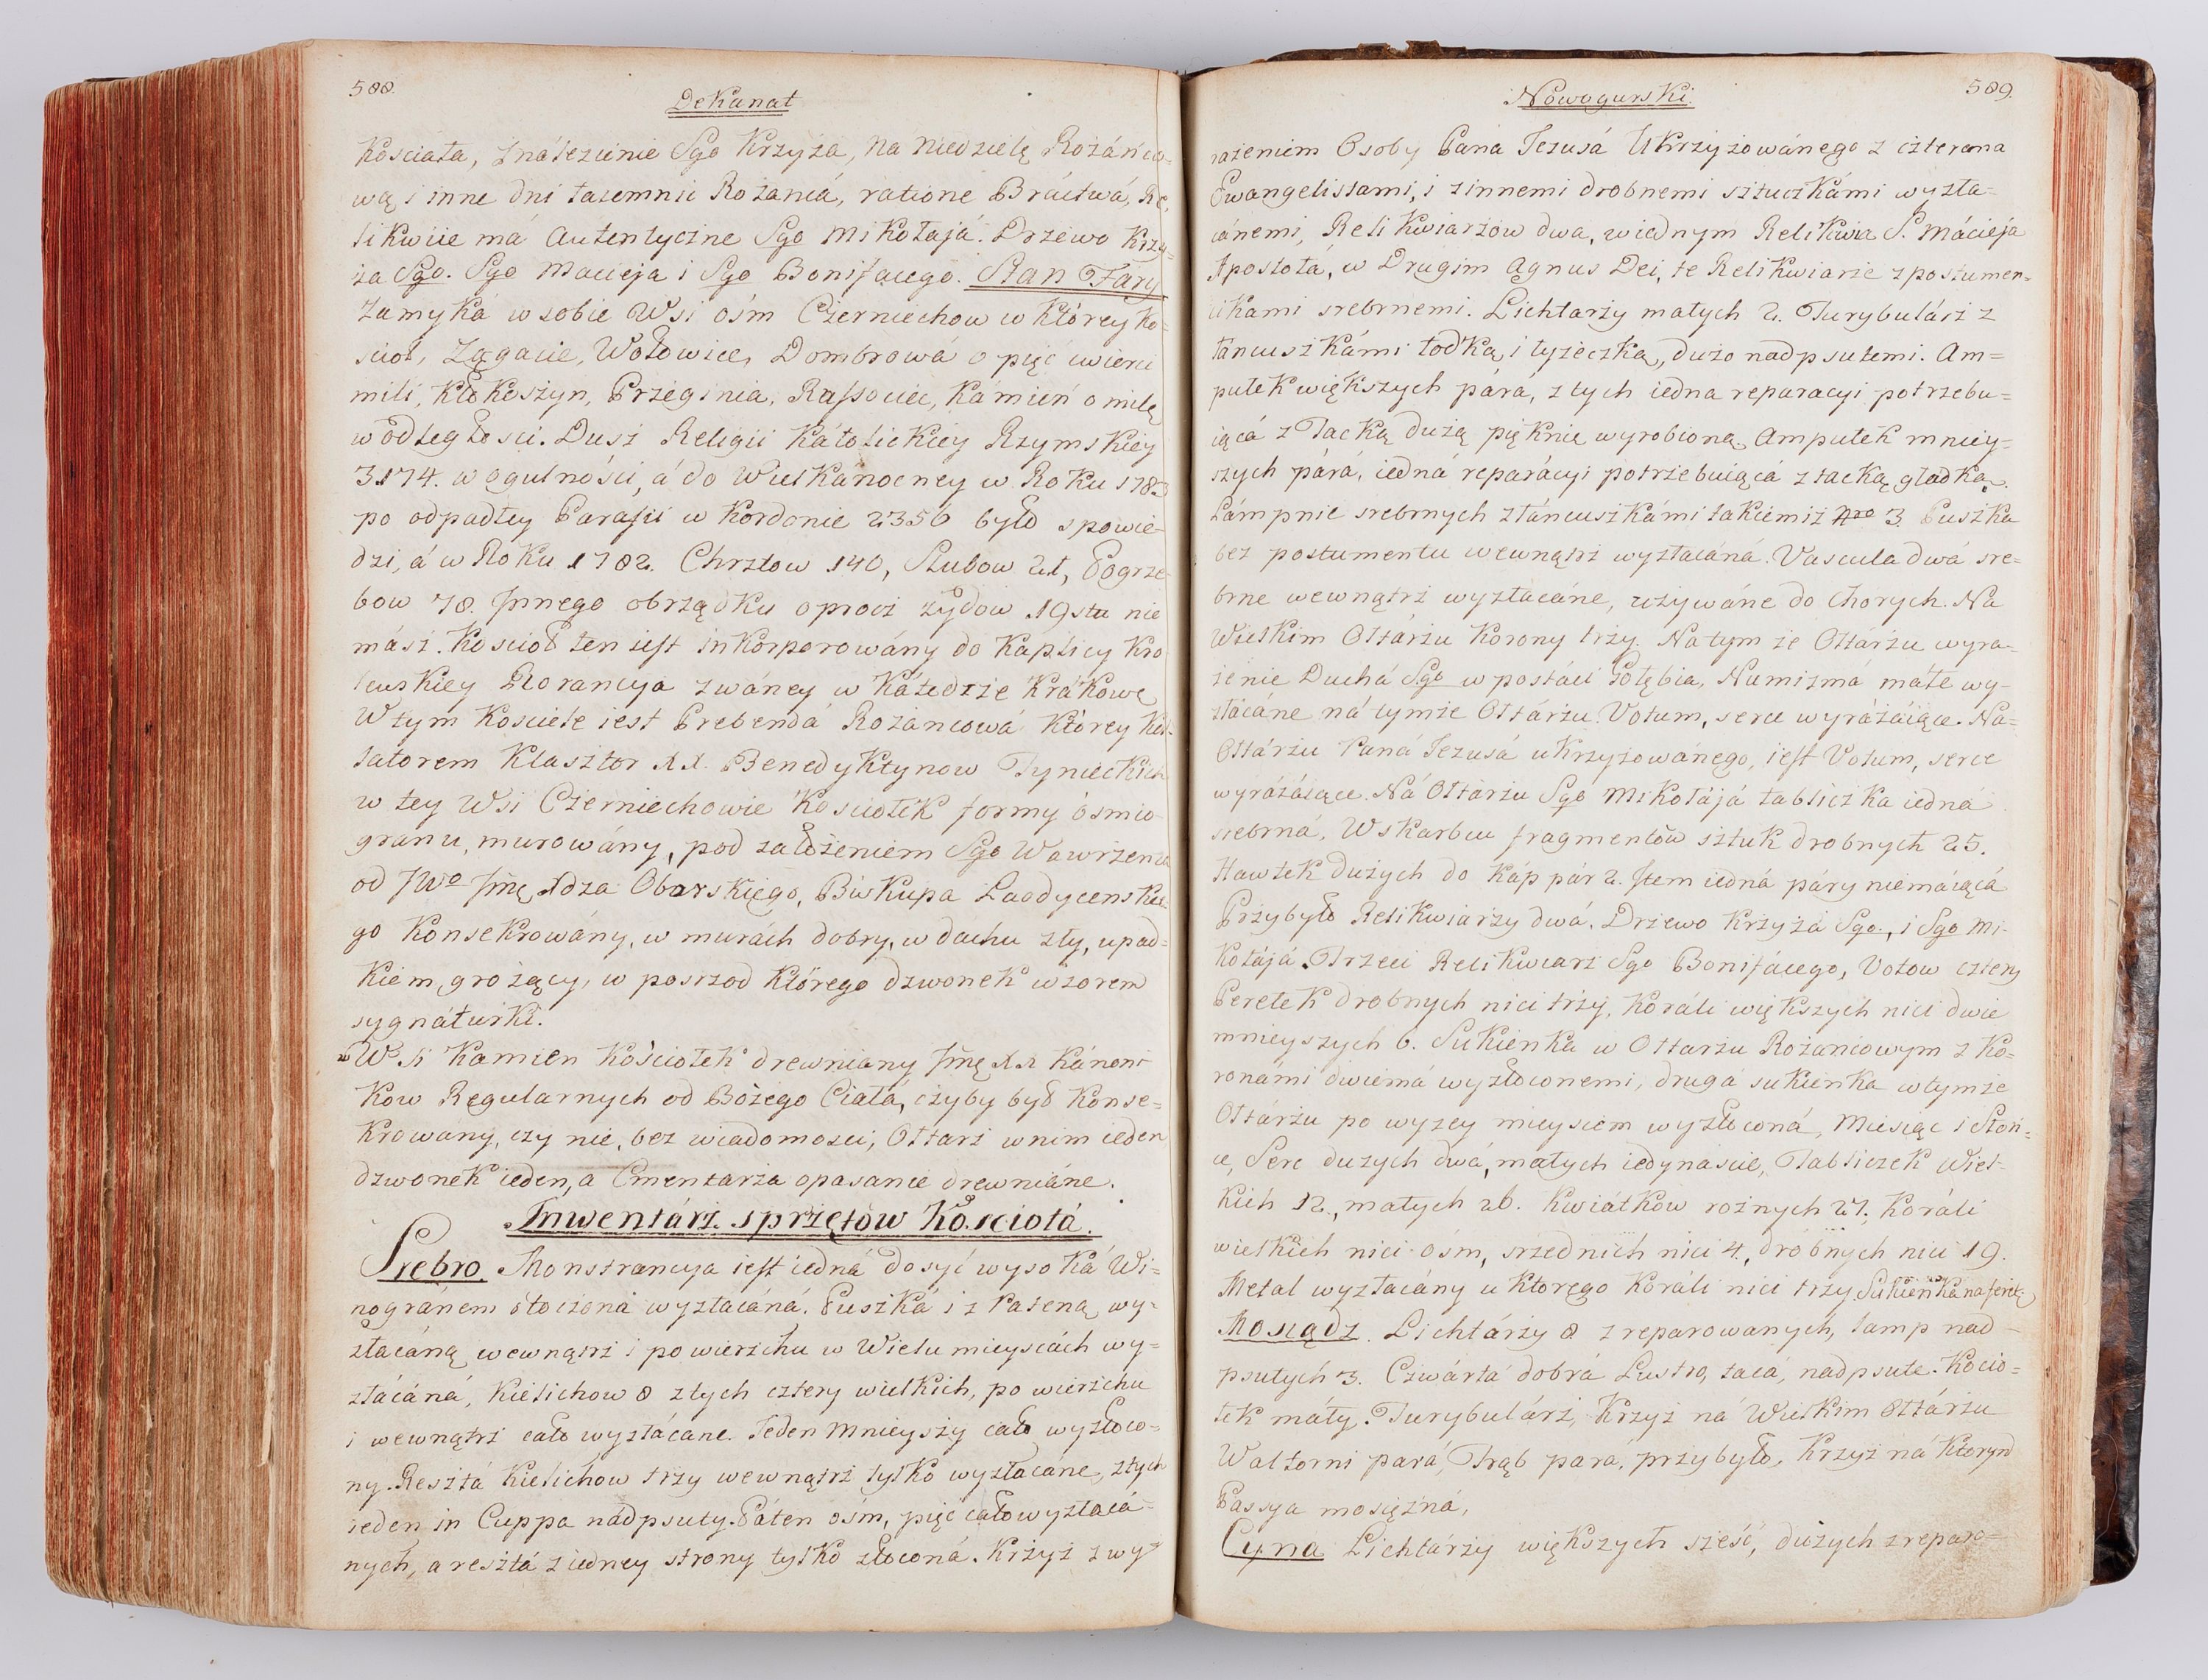 588.
Dekanat
Kosciała, Ználezienie Sgo Krzyża, na Niedzielę Rożańco=
wą i inne dni taiemnic Rożańcá, ratione Bráctwá, Re=
likwiie má Autentyczne Sgo Mikołajá. Drzewo Krzy=
ża Sgo. Sgo Macieja i Sgo Bonifacego. Stan Fary
Zamyká w sobie Wsi ośm Czerniechow w którey Ko=
scioł, Zagacie, Wołowice, Dombrowá o pięć cwierci
mili, Kłokoszyn, Przeginia, Rassociec, Kámień o milę
w odległosci. Dusz Religii Kátolickiey Rzymskiey
3174. w ogulnosci, á do Wielkánocney w Roku 1783
po odpadłey Parafii w Kordonie 2356 było spowie=
dzi, á w Roku 1782. Chrztow 140, Szlubow 21, Pogrze=
bow 78. Innego obrządku oprocz żydow 19stu nie
mász. Koscioł ten iest inkorporowány do Kaplicy Kro=
lewskiey Rorancya zwáney w Kátedrze Krákows
W tym Kosciele iest Prebendá Rożáncowá którey Kol=
latorem Klasztor XX. Benedyktynow Tynieckich
w tey Wsi Czerniechowie Kosciołek formy ósmio
granu, murowány, pod założeniem Sgo Wawrzenca
od JWo Jmę Xdza Oborskiego, Biskupa Laodycenskie=
go Konsekrowány, w murách dobry, w dachu zły, upad=
kiem grożący, w posrzod którego dzwonek wzorem
sygnáturki.
W Wsi Kamien Kościołek drewniany Jmę XX Kánoni
kow Regularnych od Bożego Ciałá, czyby był Konse=
krowany, czy nie, bez wiadomosci, Ołtarz w nim ieden
dzwonek ieden, a Cmentarza opasanie drewniáne.
Inwentárz sprzętów Kosciołá.
Srebro. Monstrancya iest iedná dosyć wysoká Wi=
nogránem otoczoná wyzłacáná. Puszká i z Pateną wy=
złacáną wewnątrz i po wierzchu w Wielu mieyscách wy=
złácáná, Kielichow 8 z tych cztery wielkich, po wierzchu
i wewnątrz cało wyzłácane. Ieden mnieyszy cało wyzłoco=
ny. Resztá Kielichow trzy wewnątrz tylko wyzłacáne, z tych
ieden in Cuppa nádpsuty. Páten ośm, pięć cało wyzłacá=
nych, a resztá z iedney strony tylko złoconá. Krzyż z wy=
Nowogurski.
589.
rażeniem Osoby Pana Jezusá Ukrzyżowánego z czterema
Ewangelistami, i z innemi drobnemi sztuczkámi wyzła=
cánemi, Relikwiarzow dwa, w iednym Relikwia S. Macieja
Apostołá, w Drugim Agnus Dei, te Relikwiarze z postumen=
tikami srebrnemi. Lichtarzy małych 2. Turybulárz z
łancuszkámi łodką i łyżeczką, dużo nadpsutemi. Am=
pułek większych pára, z tych iedna reparacyi potrzebu=
iącá z Tacką dużą pięknie wyrobioną. Ampułek mniey=
szych párá, iedná reparácyi potrzebuiącá z tacką gładką.
Lámpnie srebrnych z łáncuszkámi takiemiż Nro 3. Puszka
bez postumentu wewnątrz wyzłacáná. Vascula dwá sre=
brne wewnątrz wyzłacáne, używáne do Chorych. Na
Wielkim Ołtárzu Korony trzy. Na tym że Ołtárzu wyra=
żenie Duchá Sgo w postáci Gołębia, Numizmá máłe wy=
złácáne ná tymże Ołtárzu. Votum, serce wyrażáiące. Na=
Ołtárzu Paná Jezusá ukrzyżowánego, iest Votum, serce
wyrażáiące. Ná Ołtárzu Sgo Mikołájá tabliczka iedná
srebrná, W skarbcu fragmentów sztuk drobnych 25.
Hawtek dużych do Káp pár 2. Item iedná páry niemáiącá
Przybyło Relikwiarzy dwá. Drzewo Krzyżá Sgo., i Sgo Mi=
kołájá. Trzeci Relikwiarz Sgo Bonifácego, Votow cztery
Perełek drobnych nici trzy, Koráli większych nici dwie
mnieyszych 6. Sukienka w Ołtarzu Rożáńcowym z Ko=
ronámi dwiemá wyzłoconemi, drugá sukienka w tymże
Ołtárzu po wyzey mieysiem wyzłoconá, Miesiąc i Słoń=
ce, Serc dużych dwá, małych iedynascie, Tabliczek wiel=
kich 12., małych 26. Kwiátkow rożnych 27. Koráli
wielkich nici ośm, srzednich nici 4., drobnych nici 19.
Metal wyzłacány u ktorego Koráli nici trzy. Sukienka na feretr.
Mosiądz. Lichtárzy 8 zreparowanych, lamp nad=
psutych 3. Czwártá dobrá Lustro, tacá, nadpsute. Kocio=
łek máły. Turybulárz, Krzyż ná Wielkim Ołtárzu
Waltorni pará, Trąb para, przybyło, Krzyż ná którym
Passya mosiężná,
Cyna Lichtárzy większych sześć, dużych zreparo=